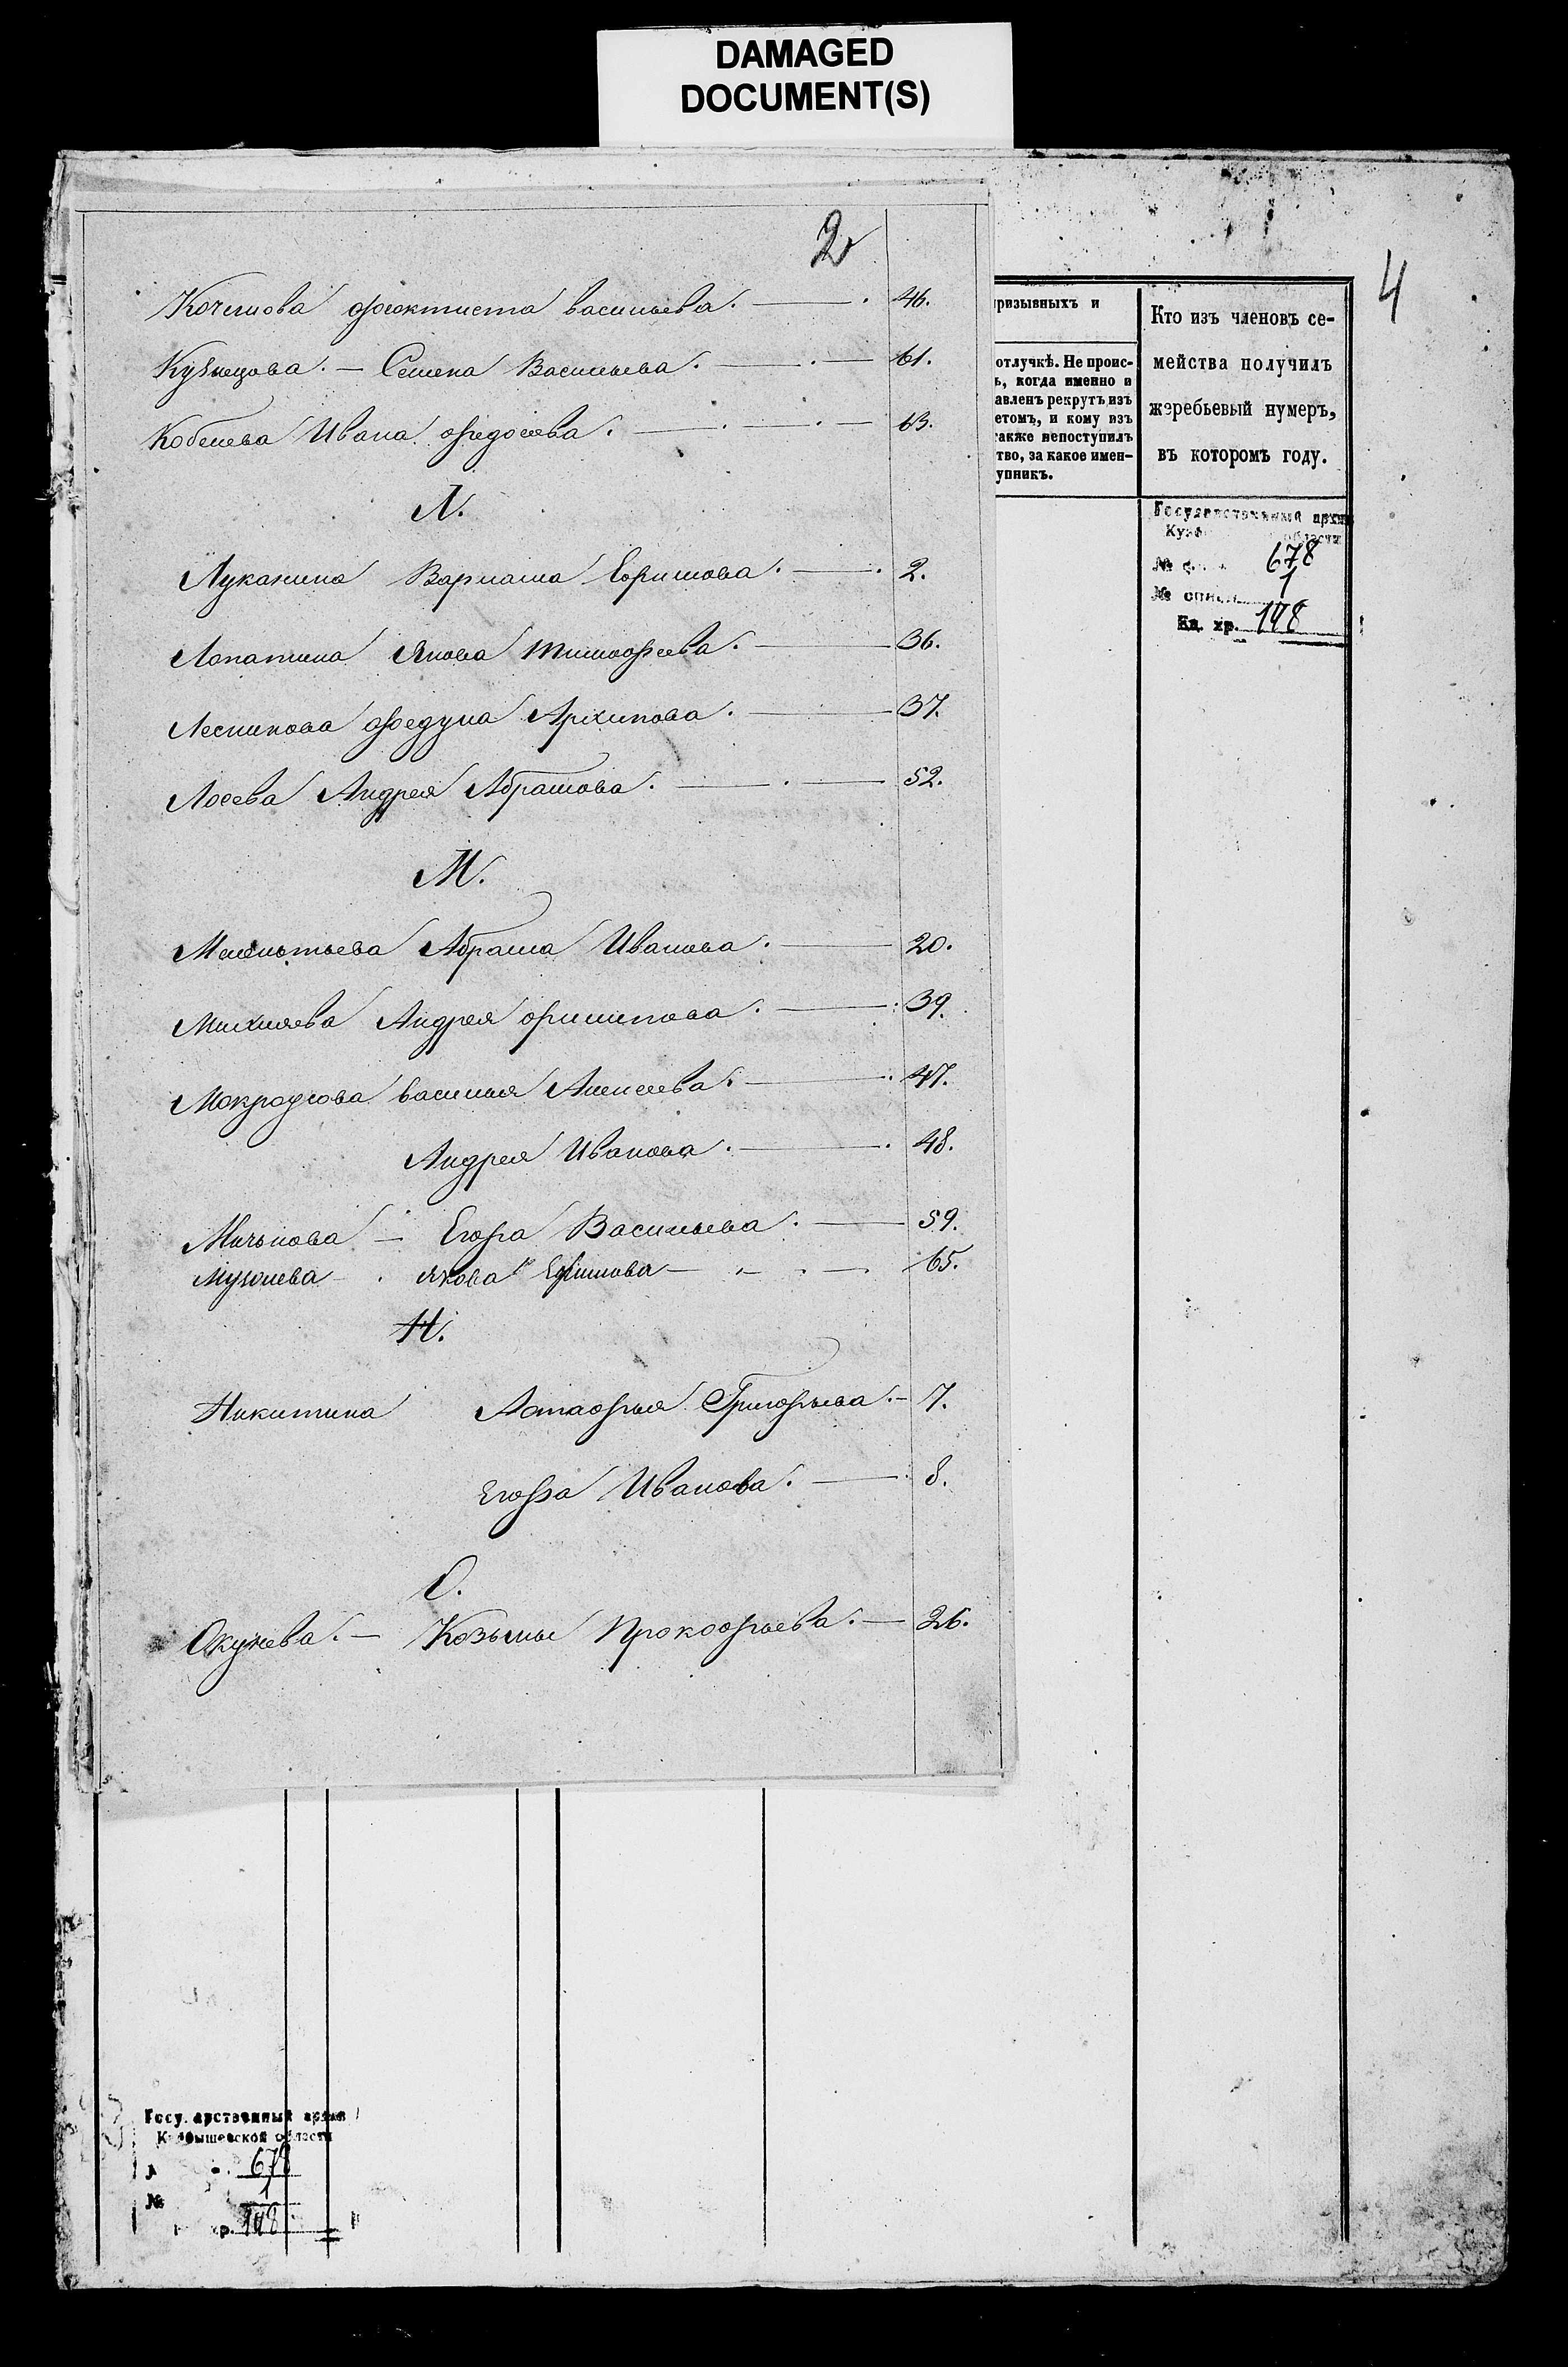 DAMAGED
DOCUMENT(S)
2
4
Кочешова феоктиста васильева. 46.
Кузнецова. — Семена Васильева. 61.
Кобелева Ивана федосеева. 63.
Л.
Луканина Варлама Ефимова. 2.
Лопатина Якова тимофеева. 36.
Лесникова федула Архипова. 37.
Лосева Андрея Абрамова. 52.
М.
Абрама Иванова. 20.
Михляева Андрея филипова. 39.
Мокроусова василья Алексеева. 47.
Андрея Иванова. 48.
Егора Васильева. 59.
Якова Ефимова 65.
Н.
Никитина Астафья Григорьева. 7.
Егора Иванова. 8.
О.
Окунева. — Козьмы Прокофьева. — 26.
призывныхъ и
отлучкѣ. Не проис-
ь, когда именно и
авленъ рекрутъ изъ
етомъ, и кому изъ
также непоступилъ
тво, за какое имен-
упникъ.
Кто изъ членовъ се-
мейства получилъ
жеребьевый нумеръ,
въ которомъ году.
Государственный архив
области
№ 678
№ описи 1
Ед. хр. 148
Государственный архив
Куйбышевской области
678
№ 1
хр. 148